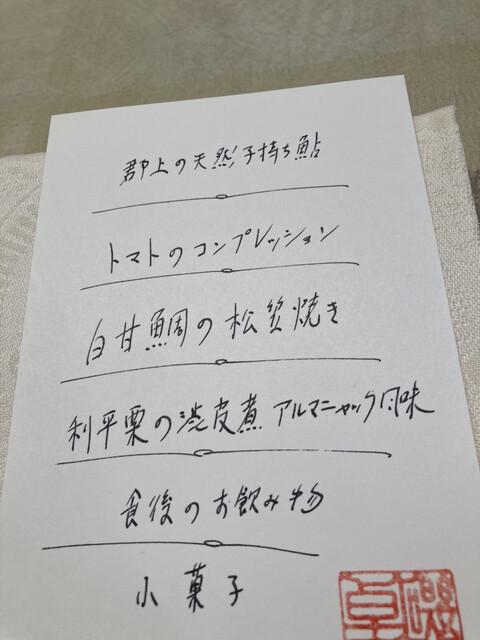 郡上の天然子持ち鮎
トマトのコンプレッション
白甘鯛の松笠焼き
利平栗の渋皮煮 アルマニャック風味
食後のお飲み物
小菓子